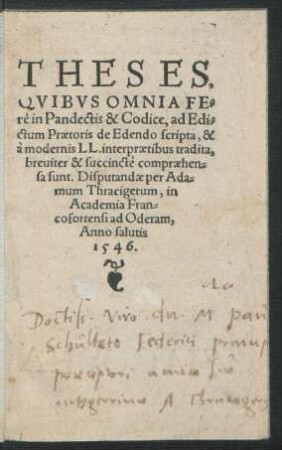 THESES,
QVIBVS OMNIA FE-
rè in Pandectis & Codice, ad Edi-
ctum Prætoris de Edendo scripta, &
à modernis LL. interprætibus tradita,
breuiter & succinctè compræhen-
sa sunt. Disputandæ per Ada-
mum Thracigerum, in
Academia Fran-
cofortensi ad Oderam,
Anno salutis
1546.
Doctiss. Viro dn. M
Federici
amico suo
integerrimo A